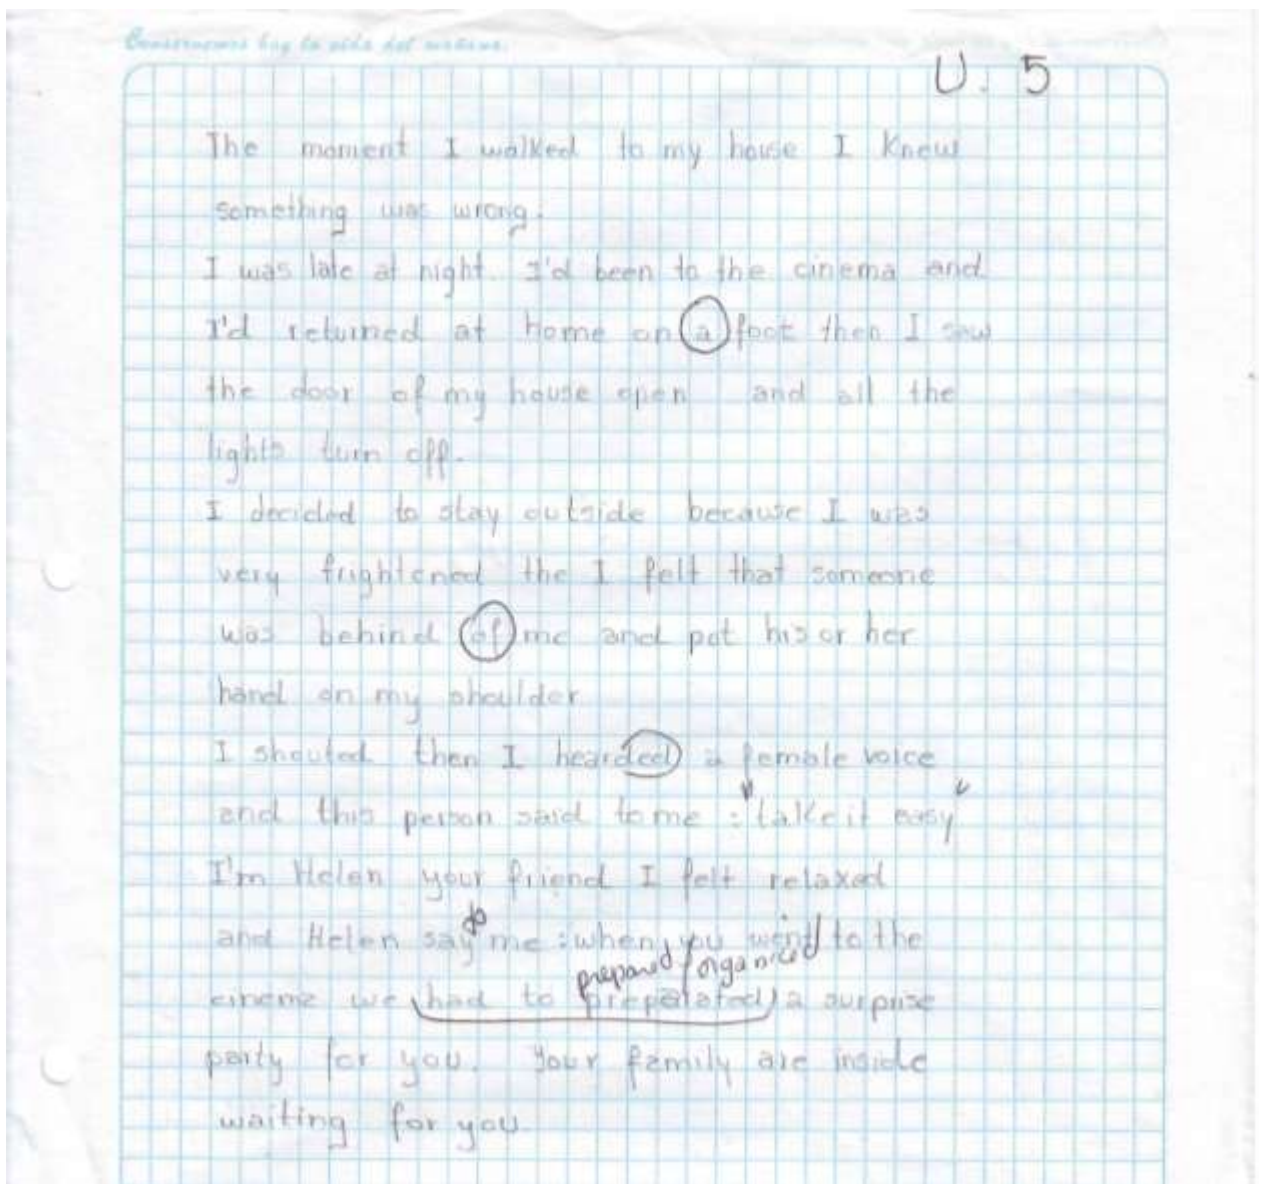 Conservemos hoy la vida del mañana.
U. 5
The moment I walked to my house I Knew
something was wrong.
I was late at night. I'd been to the cinema and
I'd returned at home on a foot then I saw
the door of my house open and all the
lights turn off.
I decided to stay outside because I was
very frightened the I felt that someone
was behind of me and put his or her
hand on my shoulder
I shouted then I hearded a female voice
and this person said to me : "take it easy"
I'm Helen your friend I felt relaxed
and Helen say to me : when you went to the
prepared / organized
cinema we had to preparated a surprise
party for you. Your family are inside
waiting for you